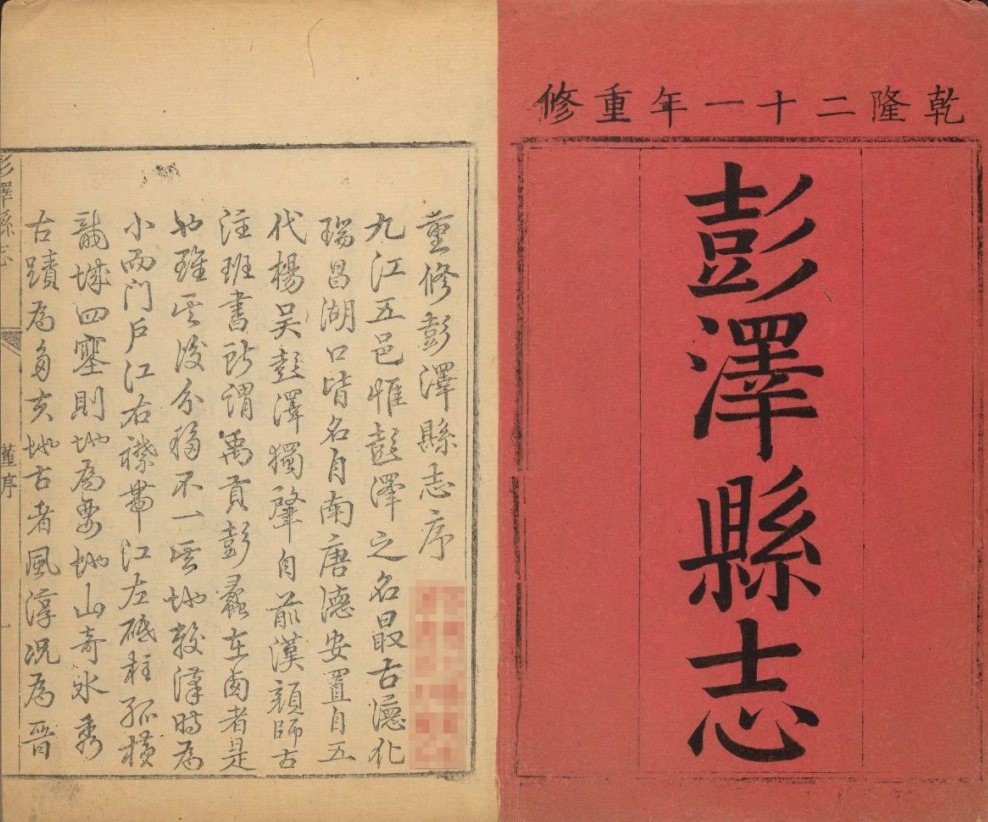 乾隆二十一年重修
彭澤縣志
重修彭澤縣志序
九江五邑惟彭澤之名最古德化
瑞昌湖口皆名自南唐德安置自五
代楊吴彭澤獨肇自前漢顔師古
注班書所謂禹貢彭蠡在南者是
也雖其後分疆不一其地較漢時為
小而門戶江右襟帶江左砥柱孤橫
龍城四塞則地為要地山奇水秀
古蹟為多夫地古者風淳況為晉
彭澤縣志
董序
一